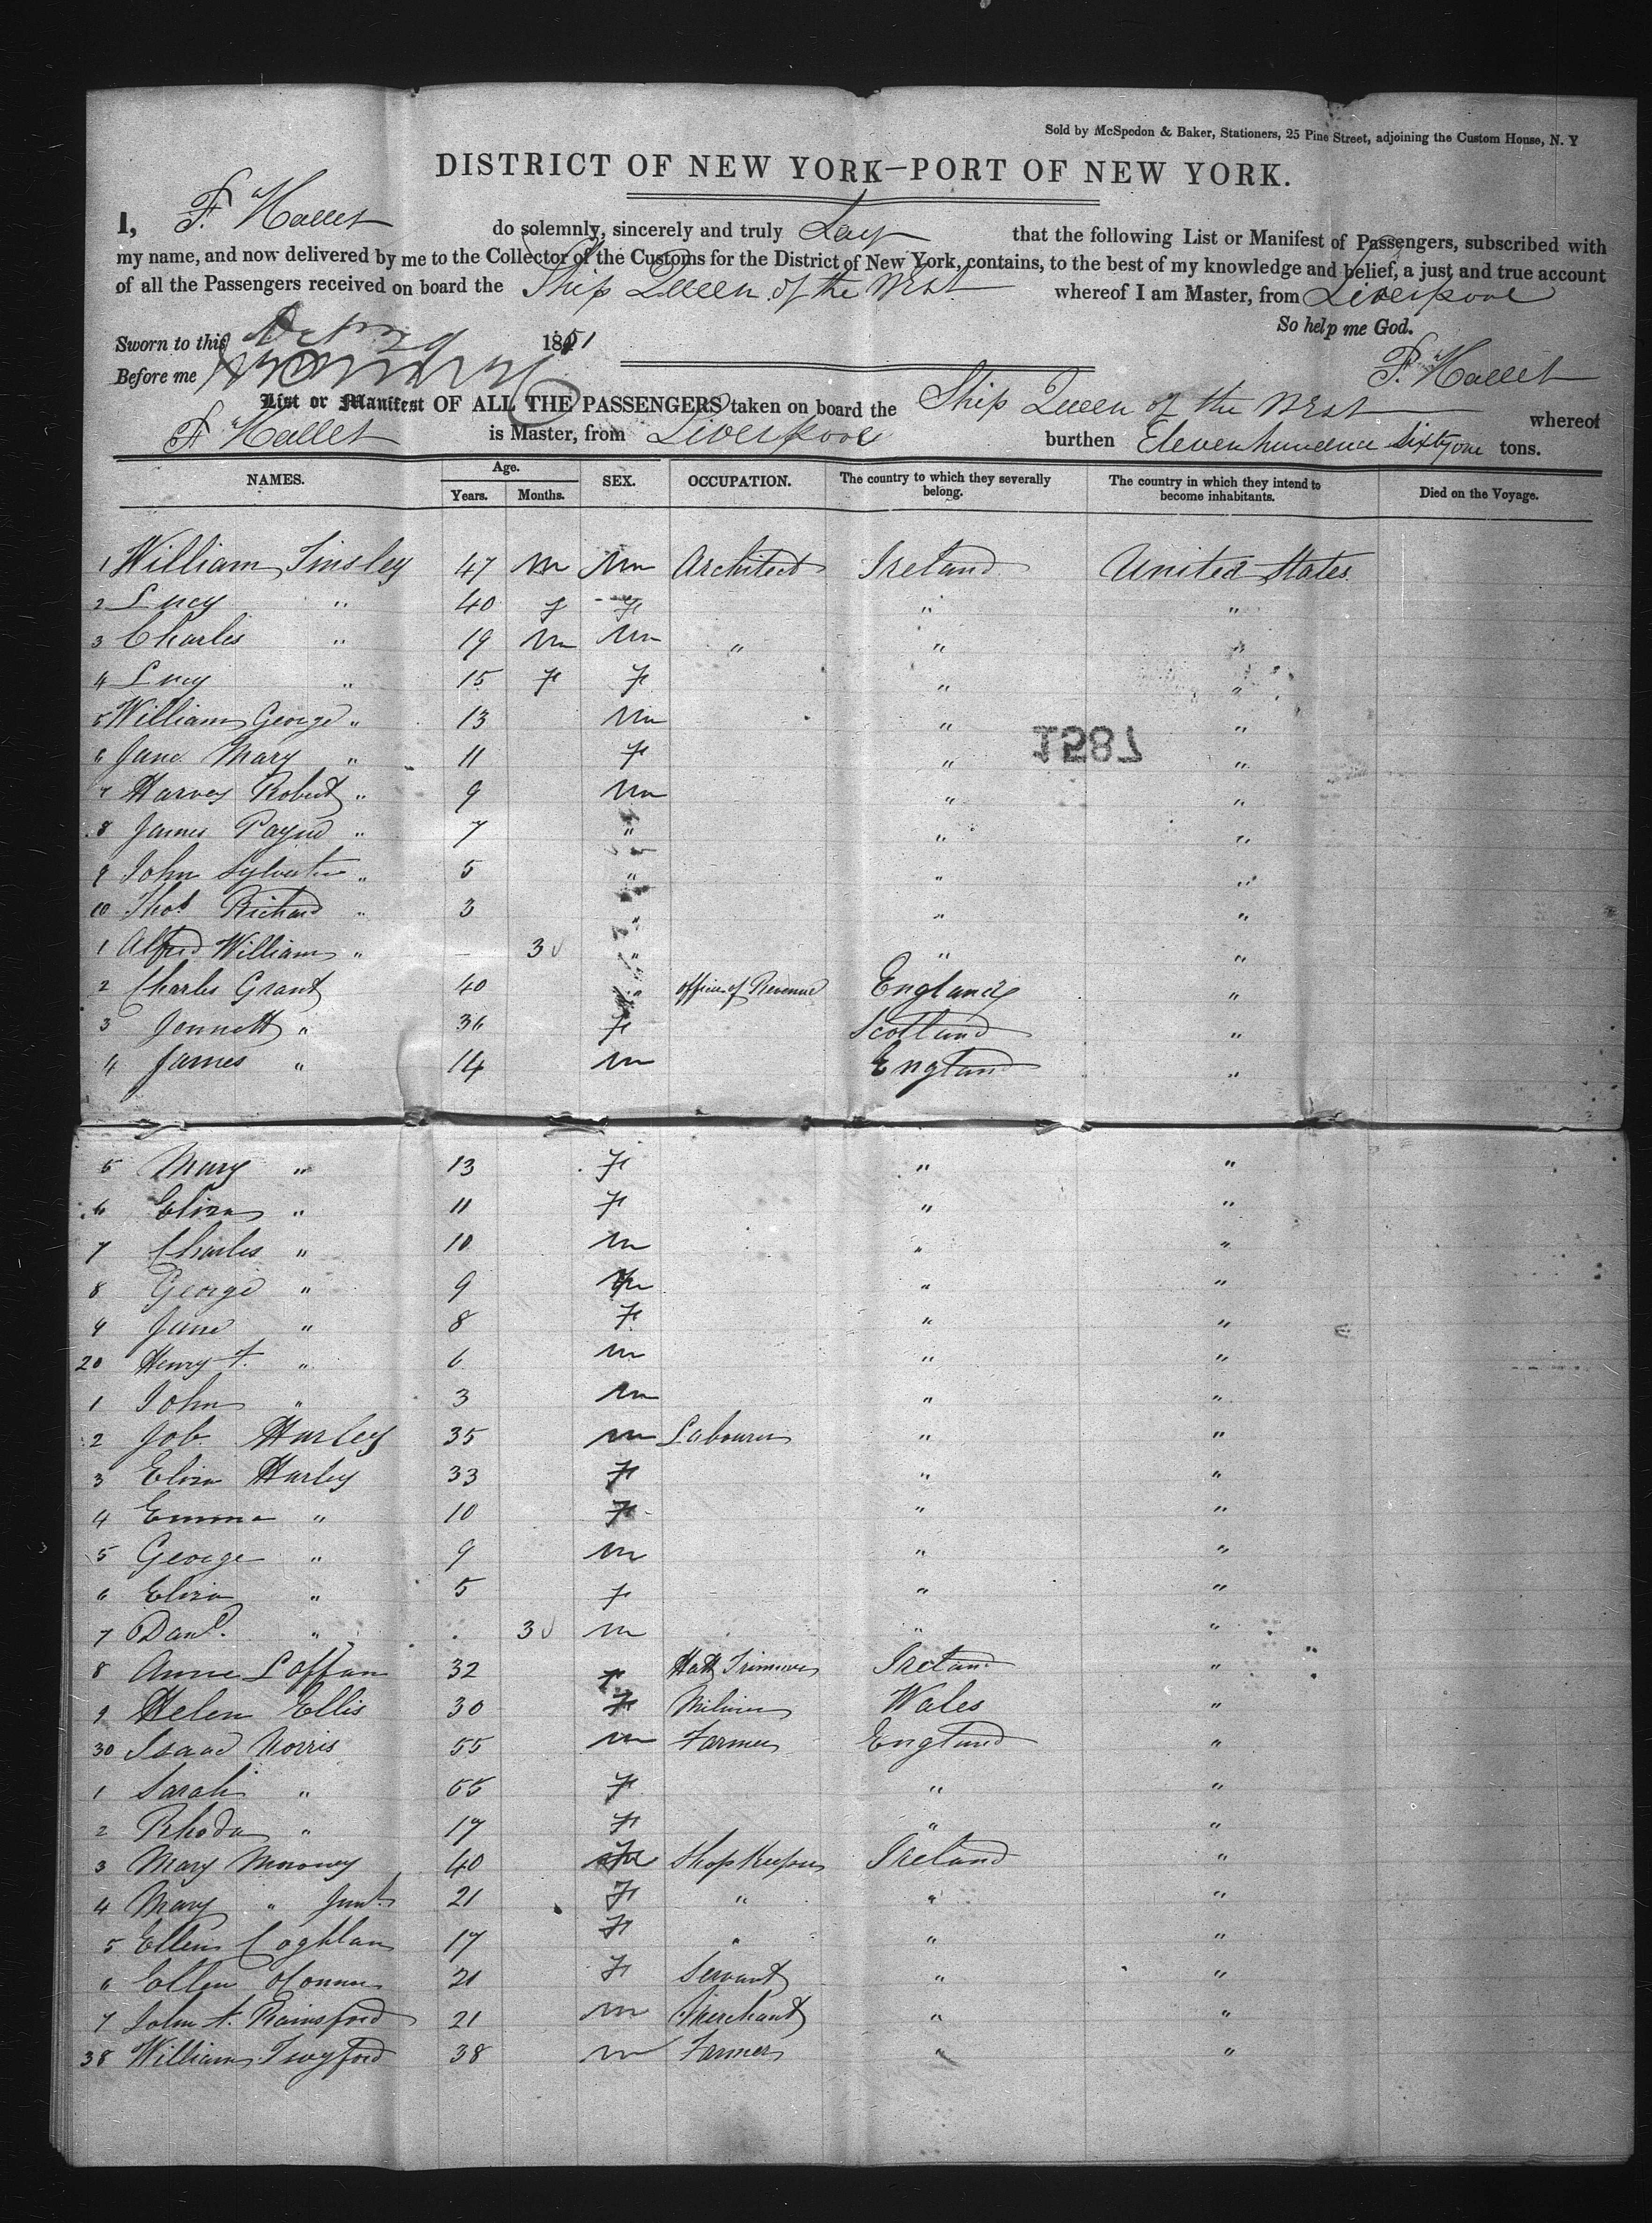 Sold by McSpedon & Baker, Stationers, 25 Pine Street, adjoining the Custom House, N. Y
DISTRICT OF NEW YORK—PORT OF NEW YORK.
I, F. Hallet do solemnly, sincerely and truly Say that the following List or Manifest of Passengers, subscribed with
my name, and now delivered by me to the Collector of the Customs for the District of New York, contains, to the best of my knowledge and belief, a just and true account
of all the Passengers received on board the Ship Queen of the West whereof I am Master, from Liverpool
So help me God.
Sworn to this 1851
Before me F. Hallet
List or Manifest OF ALL THE PASSENGERS taken on board the Ship Queen of the West whereof
F Hallet is Master, from Liverpool burthen Eleven hundred Sixty one tons.
NAMES. Age. Years. Months. SEX. OCCUPATION. The country to which they severally belong. The country in which they intend to become inhabitants. Died on the Voyage.
1 William Tinsley 47 m m Architect Ireland United States
2 Lucy " 40 f f " "
3 Charles " 19 m m " " "
4 Lucy " 15 f f " "
5 William George " 13 m " "
6 Jane Mary " 11 f " "
7 Harvey Robert " 9 m " "
8 James Payne " 7 " " "
9 John Sylvester " 5 " " "
10 Thos Richard " 3 " " "
1 Alfred William " — 3 " " "
2 Charles Grant 40 " officer of Revenue England "
3 Jennett " 36 f Scotland "
4 James " 14 m England "
1587
5 Mary " 13 f " "
6 Eliza " 11 f " "
7 Charles " 10 m " "
8 George " 9 m " "
9 Jane " 8 f " "
20 Henry F. " 6 m " "
1 John " 3 m " "
2 Job Hurley 35 m Labourer " "
3 Eliza Hurley 33 f " "
4 Emma " 10 f " "
5 George " 9 m " "
6 Eliza " 5 f " "
7 Danl. " 3 m " "
8 Anne Laffan 32 f Hatt Trimmer Ireland "
9 Helen Ellis 30 f Miliner Wales "
30 Isaac Norris 55 m Farmer England "
1 Sarah " 55 f " "
2 Rhoda " 17 f " "
3 Mary Moroney 40 f Shop Keeper Ireland "
4 Mary " Junr. 21 f " " "
5 Ellen Coghlan 17 f " " "
6 Ellen OConner 21 f Servant " "
7 John A. Rainsford 21 m Merchant " "
38 William Twyford 38 m Farmer " "